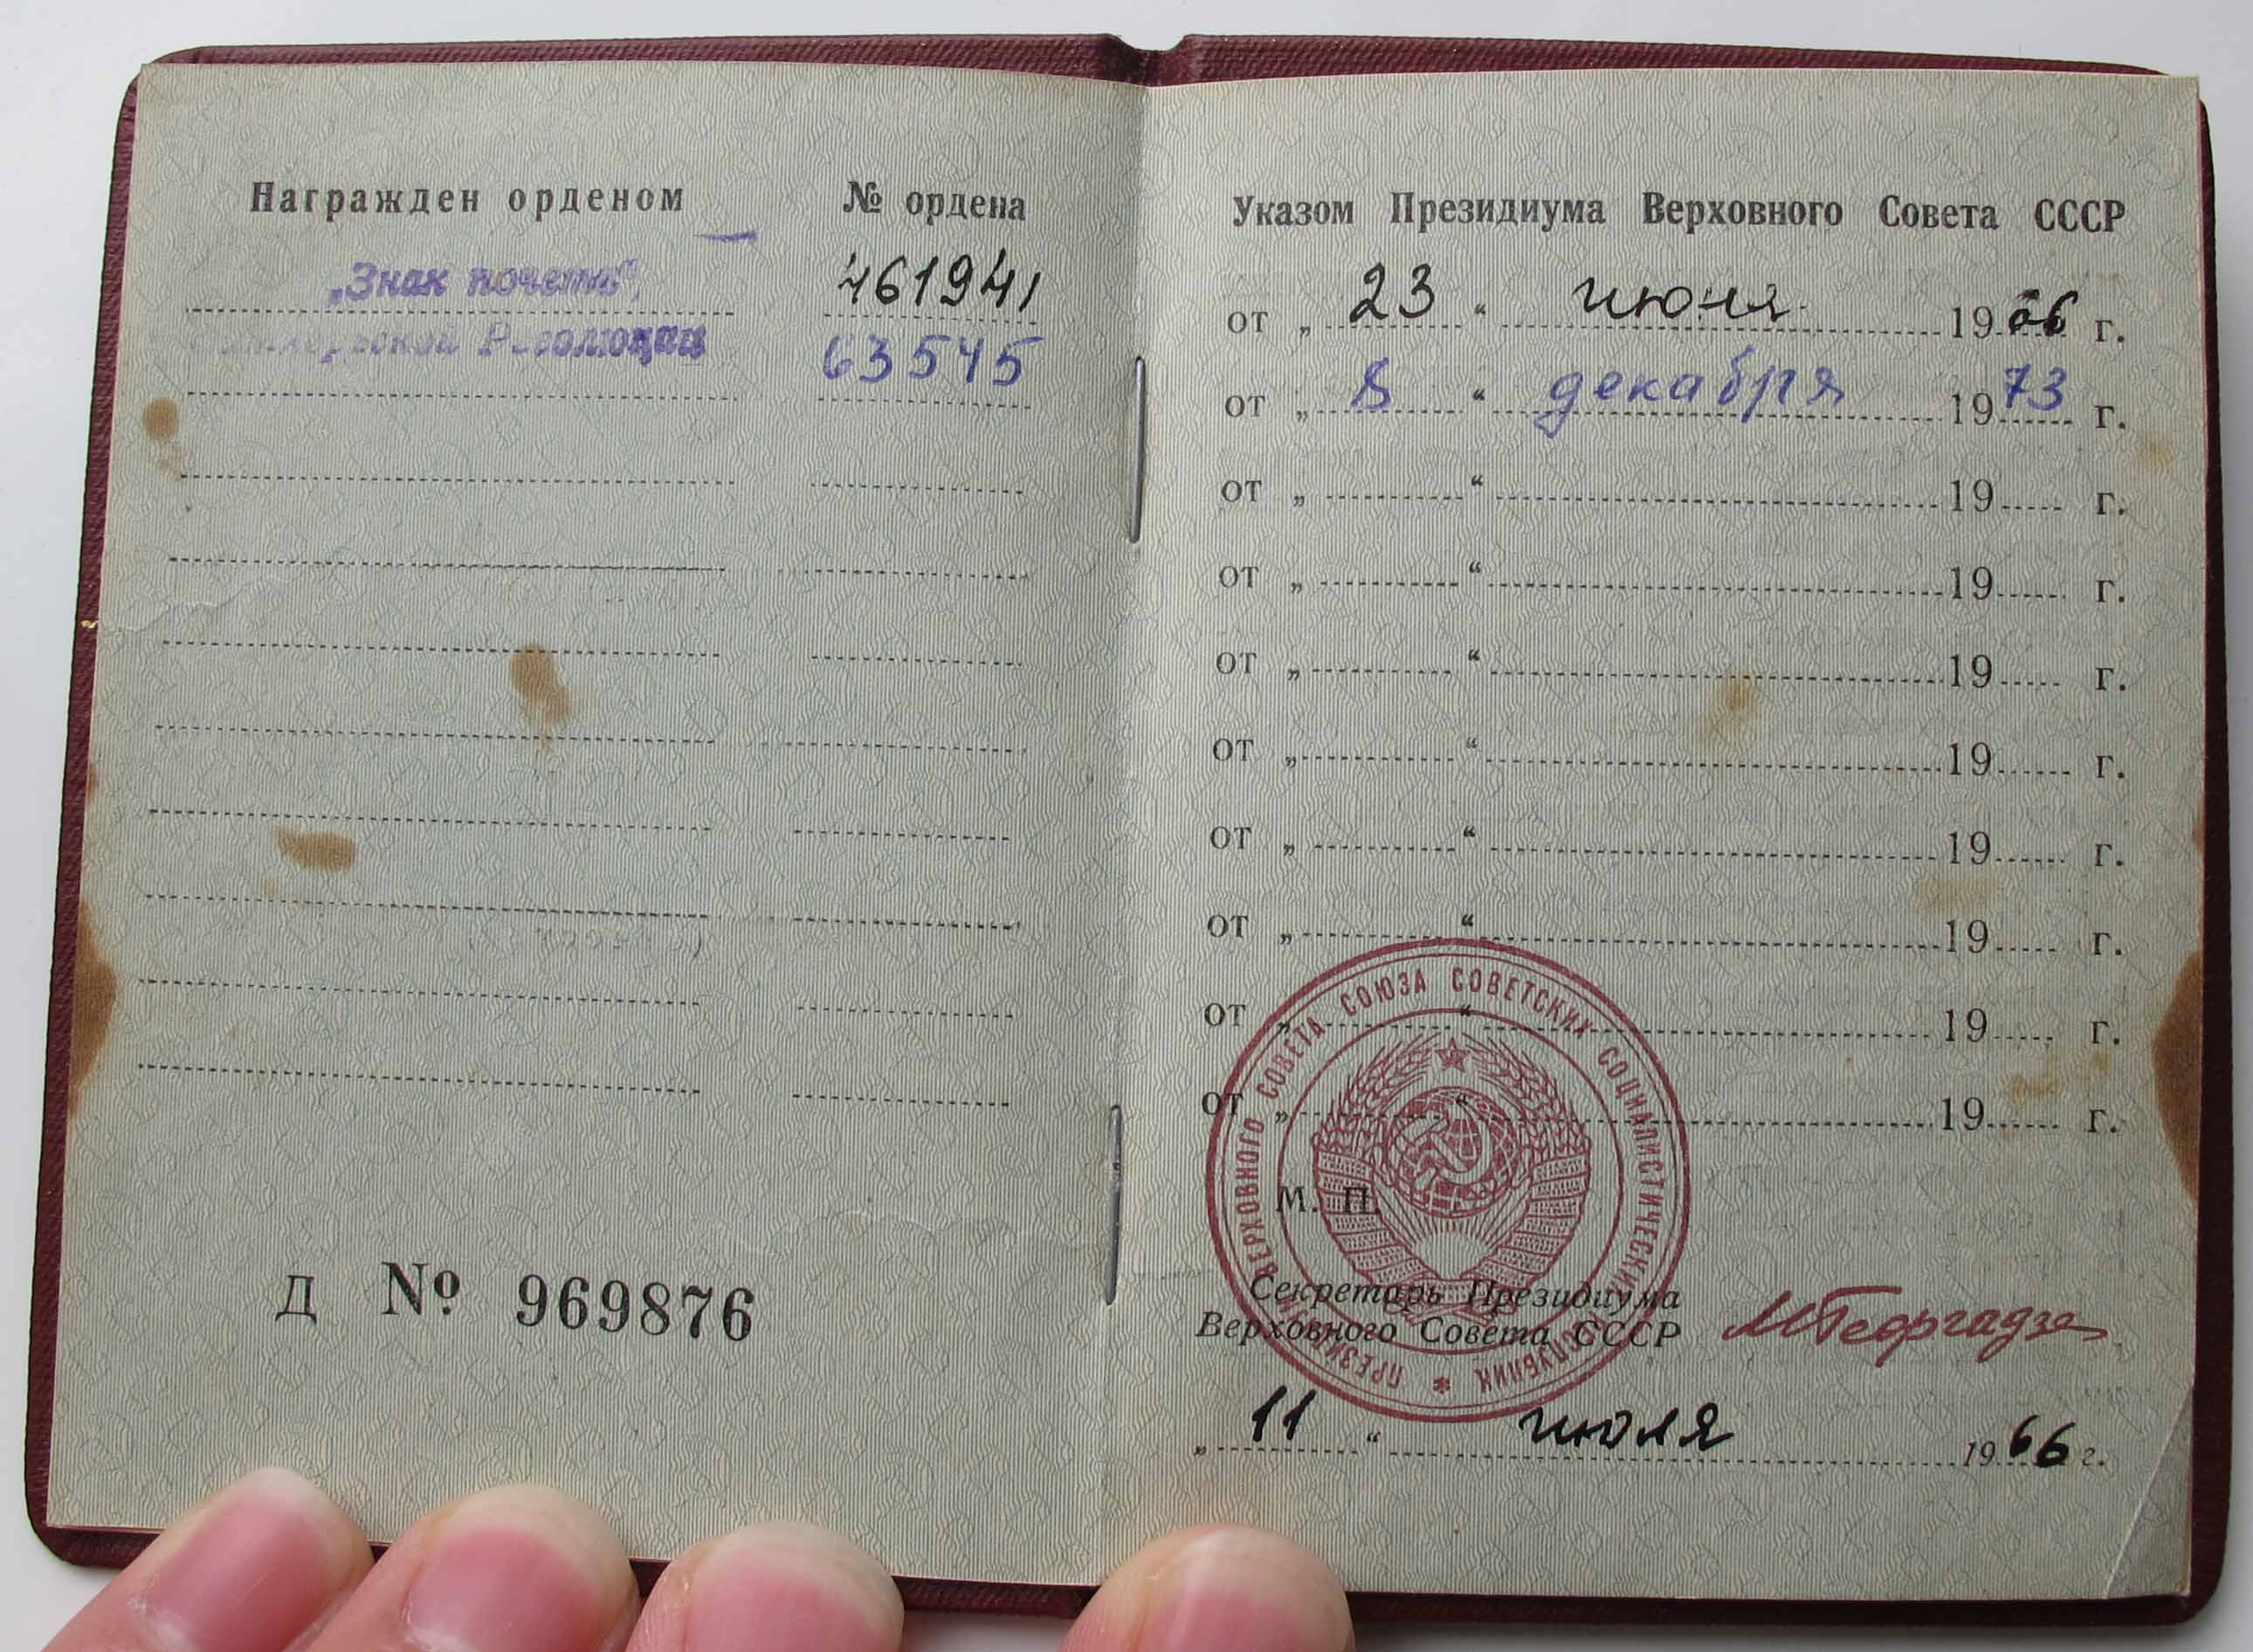 Награжден орденом № ордена
„Знак почета“, 461941
Октябрьской Революции 63545
Д № 969876
Указом Президиума Верховного Совета СССР
от „ 23 “ июня 1966 г.
от „ 8 “ декабря 1973 г.
от „ “ 19 г.
от „ “ 19 г.
от „ “ 19 г.
от „ “ 19 г.
от „ “ 19 г.
от „ “ 19 г.
от „ “ 19 г.
от „ “ 19 г.
ПРЕЗИДИУМ ВЕРХОВНОГО СОВЕТА СОЮЗА СОВЕТСКИХ СОЦИАЛИСТИЧЕСКИХ РЕСПУБЛИК *
М. П.
Секретарь Президиума
Верховного Совета СССР МГеоргадзе
„ 11 “ июля 1966 г.